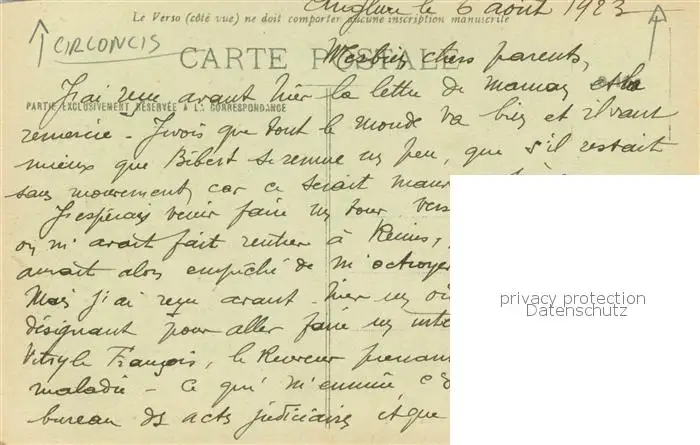 Anglure le 6 août 1923
Le Verso (côté vue) ne doit comporter aucune inscription manuscrite
CIRCONCIS
CARTE POSTALE
Mes biens chers parents,
J'ai reçu avant hier la lettre de maman et la
PARTIE EXCLUSIVEMENT RÉSERVÉE A LA CORRESPONDANCE
remercie - Je vois que tout le monde va bien et il vaut
mieux que Bébert se remue un peu, que s'il restait
sans mouvement, car ce serait mauv
J'espérais venir faire un tour vers
on m'avait fait rentrer à Reims,
aurait alors empêché de m'octroyer
Mais j'ai reçu avant-hier un
désignant pour aller faire un inté
Vitry le François, le Receveur prenant
maladie - Ce qui m'ennuie c'
bureau ds acts judiciaires et que
privacy protection
Datenschutz